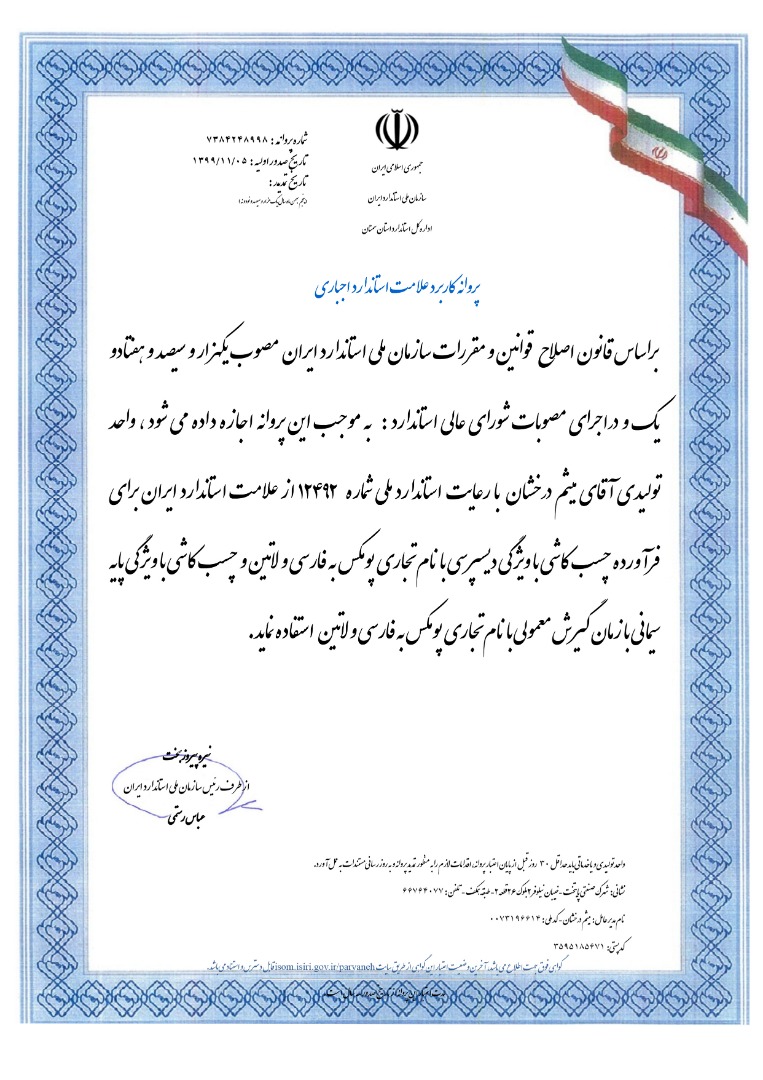 جمهوری اسلامی ایران
سازمان ملی استاندارد ایران
اداره کل استاندارد استان سمنان
شماره پروانه : ۷۳۸۴۲۴۸۹۹۸
تاریخ صدور اولیه : ۱۳۹۹/۱۱/۰۵
تاریخ تمدید :
پروانه کاربرد علامت استاندارد اجباری
براساس قانون اصلاح قوانین و مقررات سازمان ملی استاندارد ایران مصوب یکهزار و سیصد و هفتاد و
یک و در اجرای مصوبات شورای عالی استاندارد : به موجب این پروانه اجازه داده می شود ، واحد
تولیدی آقای میثم درخشان با رعایت استاندارد ملی شماره ۱۲۴۹۲ از علامت استاندارد ایران برای
فرآورده چسب کاشی با ویژگی دیسپرسی با نام تجاری پومکس به فارسی و لاتین و چسب کاشی با ویژگی پایه
سیمانی با زمان گیرش معمولی با نام تجاری پومکس به فارسی و لاتین استفاده نماید.
نیره پیروزبخت
از طرف رئیس سازمان ملی استاندارد ایران
عباس رستمی
واحد تولیدی و یا خدماتی باید حداقل ۳۰ روز قبل از پایان اعتبار پروانه، اقدامات لازم را به منظور تمدید پروانه و به روز رسانی مستندات به عمل آورد.
نشانی: شهرک صنعتی پایتخت - خیابان نیلوفر ۲ بلوک ۲۶ قطعه ۲ - طبقه همکف - تلفن: ۶۶۷۶۴۰۷۷
نام مدیر عامل: میثم درخشان - کد ملی: ۰۰۷۳۱۹۶۶۱۴
کد پستی: ۳۵۹۵۱۸۵۶۷۱
گواهی فوق جهت اطلاع می باشد، آخرین وضعیت اعتبار این گواهی از طریق سایت isom.isiri.gov.ir/parvaneh قابل دسترس و استناد می باشد.